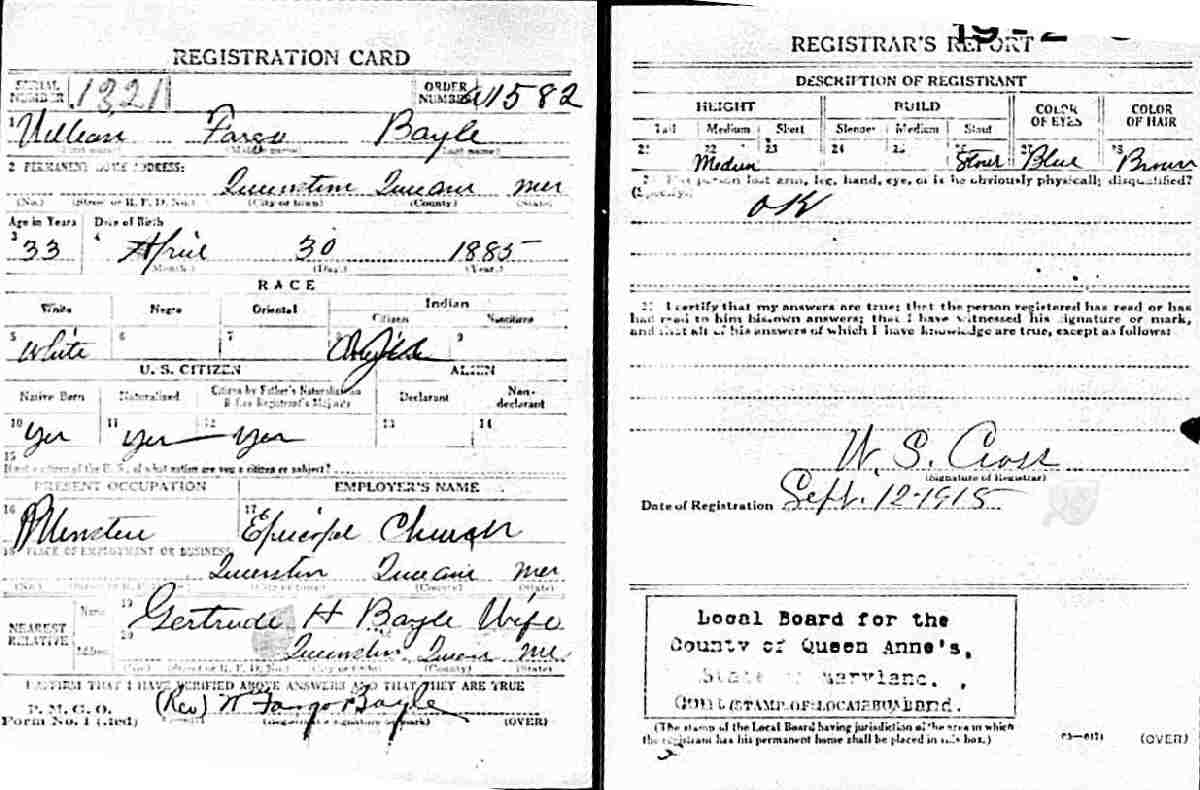 REGISTRATION CARD
SERIAL NUMBER 1321 ORDER NUMBER 1582
1 William Fargo Bayle
(First name) (Middle name) (Last name)
2 PERMANENT HOME ADDRESS:
(No.) (Street or R. F. D. No.) (City or town) (County) (State)
Age in Years Date of Birth
3 33 4 April 30 1885
(Month.) (Day.) (Year.)
RACE
White Negro Oriental Indian
Citizen Noncitizen
5 White 6 7 8 9
U. S. CITIZEN ALIEN
Native Born Naturalized Citizen by Father's Naturalization Before Registrant's Majority Declarant Non-declarant
10 Yes 11 Yes 12 Yes 13 14
15 If not a citizen of the U. S., of what nation are you a citizen or subject?
PRESENT OCCUPATION EMPLOYER'S NAME
16 Minister 17 Episcopal Church
18 PLACE OF EMPLOYMENT OR BUSINESS:
(No.) (Street or R. F. D. No.) (City or town) (County) (State)
NEAREST RELATIVE Name 19 Gertrude H Bayle Wife
Address 20
(No.) (Street or R. F. D. No.) (City or town) (County) (State)
I AFFIRM THAT I HAVE VERIFIED ABOVE ANSWERS AND THAT THEY ARE TRUE
P. M. G. O.
Form No. 1 (Red) (Rev) W Fargo Bayle
(Registrant's signature or mark) (OVER)
REGISTRAR'S REPORT
DESCRIPTION OF REGISTRANT
HEIGHT BUILD COLOR OF EYES COLOR OF HAIR
Tall Medium Short Slender Medium Stout
21 22 Medium 23 24 25 26 Stout 27 Blue 28 Brown
29 Has person lost arm, leg, hand, eye, or is he obviously physically disqualified?
(Specify.) OK
30 I certify that my answers are true; that the person registered has read or has
had read to him his own answers; that I have witnessed his signature or mark,
and that all of his answers of which I have knowledge are true, except as follows:
W. S. Cross
(Signature of Registrar)
Date of Registration Sept. 12-1918
Local Board for the
County of Queen Anne's,
State of Maryland.
(STAMP OF LOCAL BOARD)
(The stamp of the Local Board having jurisdiction of the area in which
the registrant has his permanent home shall be placed in this box.)
(OVER)